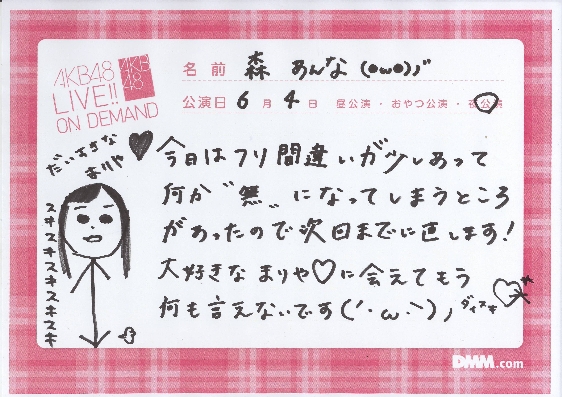 AKB48
LIVE!!
ON DEMAND
AKB
48
名前 森 あんな (●ω●)ノ"
公演日 6月 4日 昼公演・おやつ公演・夜公演
だいすきな
まりや♥
スキスキスキスキスキ
今日はフリ間違いが少しあって
何か"無"になってしまうところ
があったので次回までに直します!
大好きなまりや♡に会えてもう
何も言えないです(´・ω・`)ノ ダイスキ
DMM.com